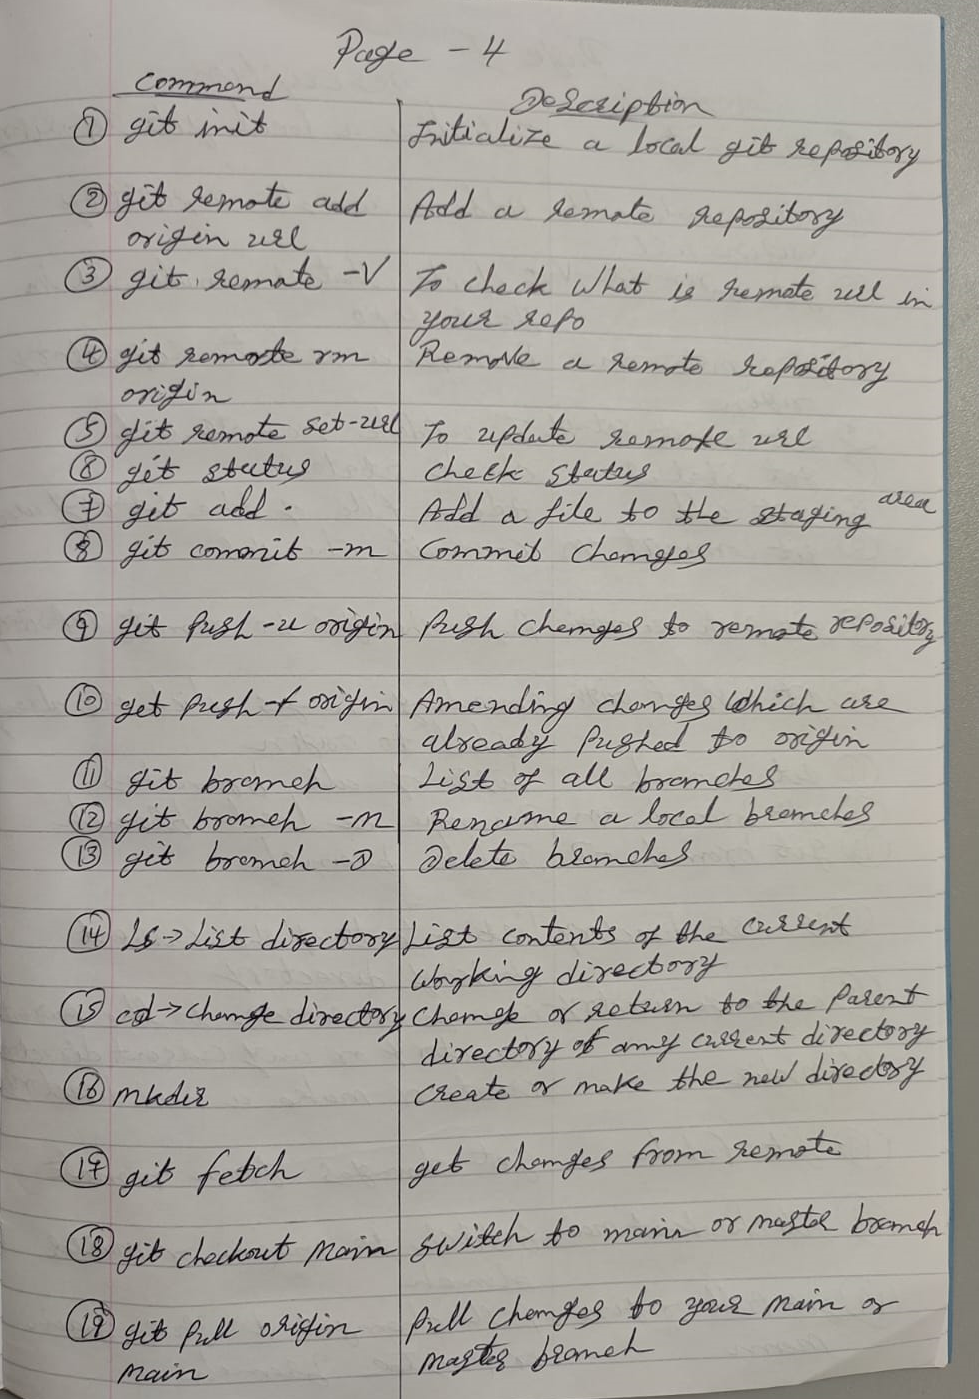 Page - 4
Command
Description
① git init
Initialize a local git repository
② git remote add
Add a remote repository
origin url
③ git remote -V
To check what is remote url in
your repo
④ git remote rm
Remove a remote repository
origin
⑤ git remote set-url
To update remote url
⑥ git status
check status
⑦ git add .
Add a file to the staging area
⑧ git commit -m
Commit changes
⑨ git push -u origin
Push changes to remote repository
⑩ get push -f origin
Amending changes which are
already pushed to origin
⑪ git branch
List of all branches
⑫ git branch -m
Rename a local branches
⑬ git branch -D
Delete branches
⑭ ls → List directory
List contents of the current
working directory
⑮ cd → change directory
Change or return to the parent
directory of any current directory
⑯ mkdir
create or make the new directory
⑰ git fetch
get changes from remote
⑱ git checkout main
switch to main or master branch
⑲ git pull origin
Pull changes to your main or
main
master branch